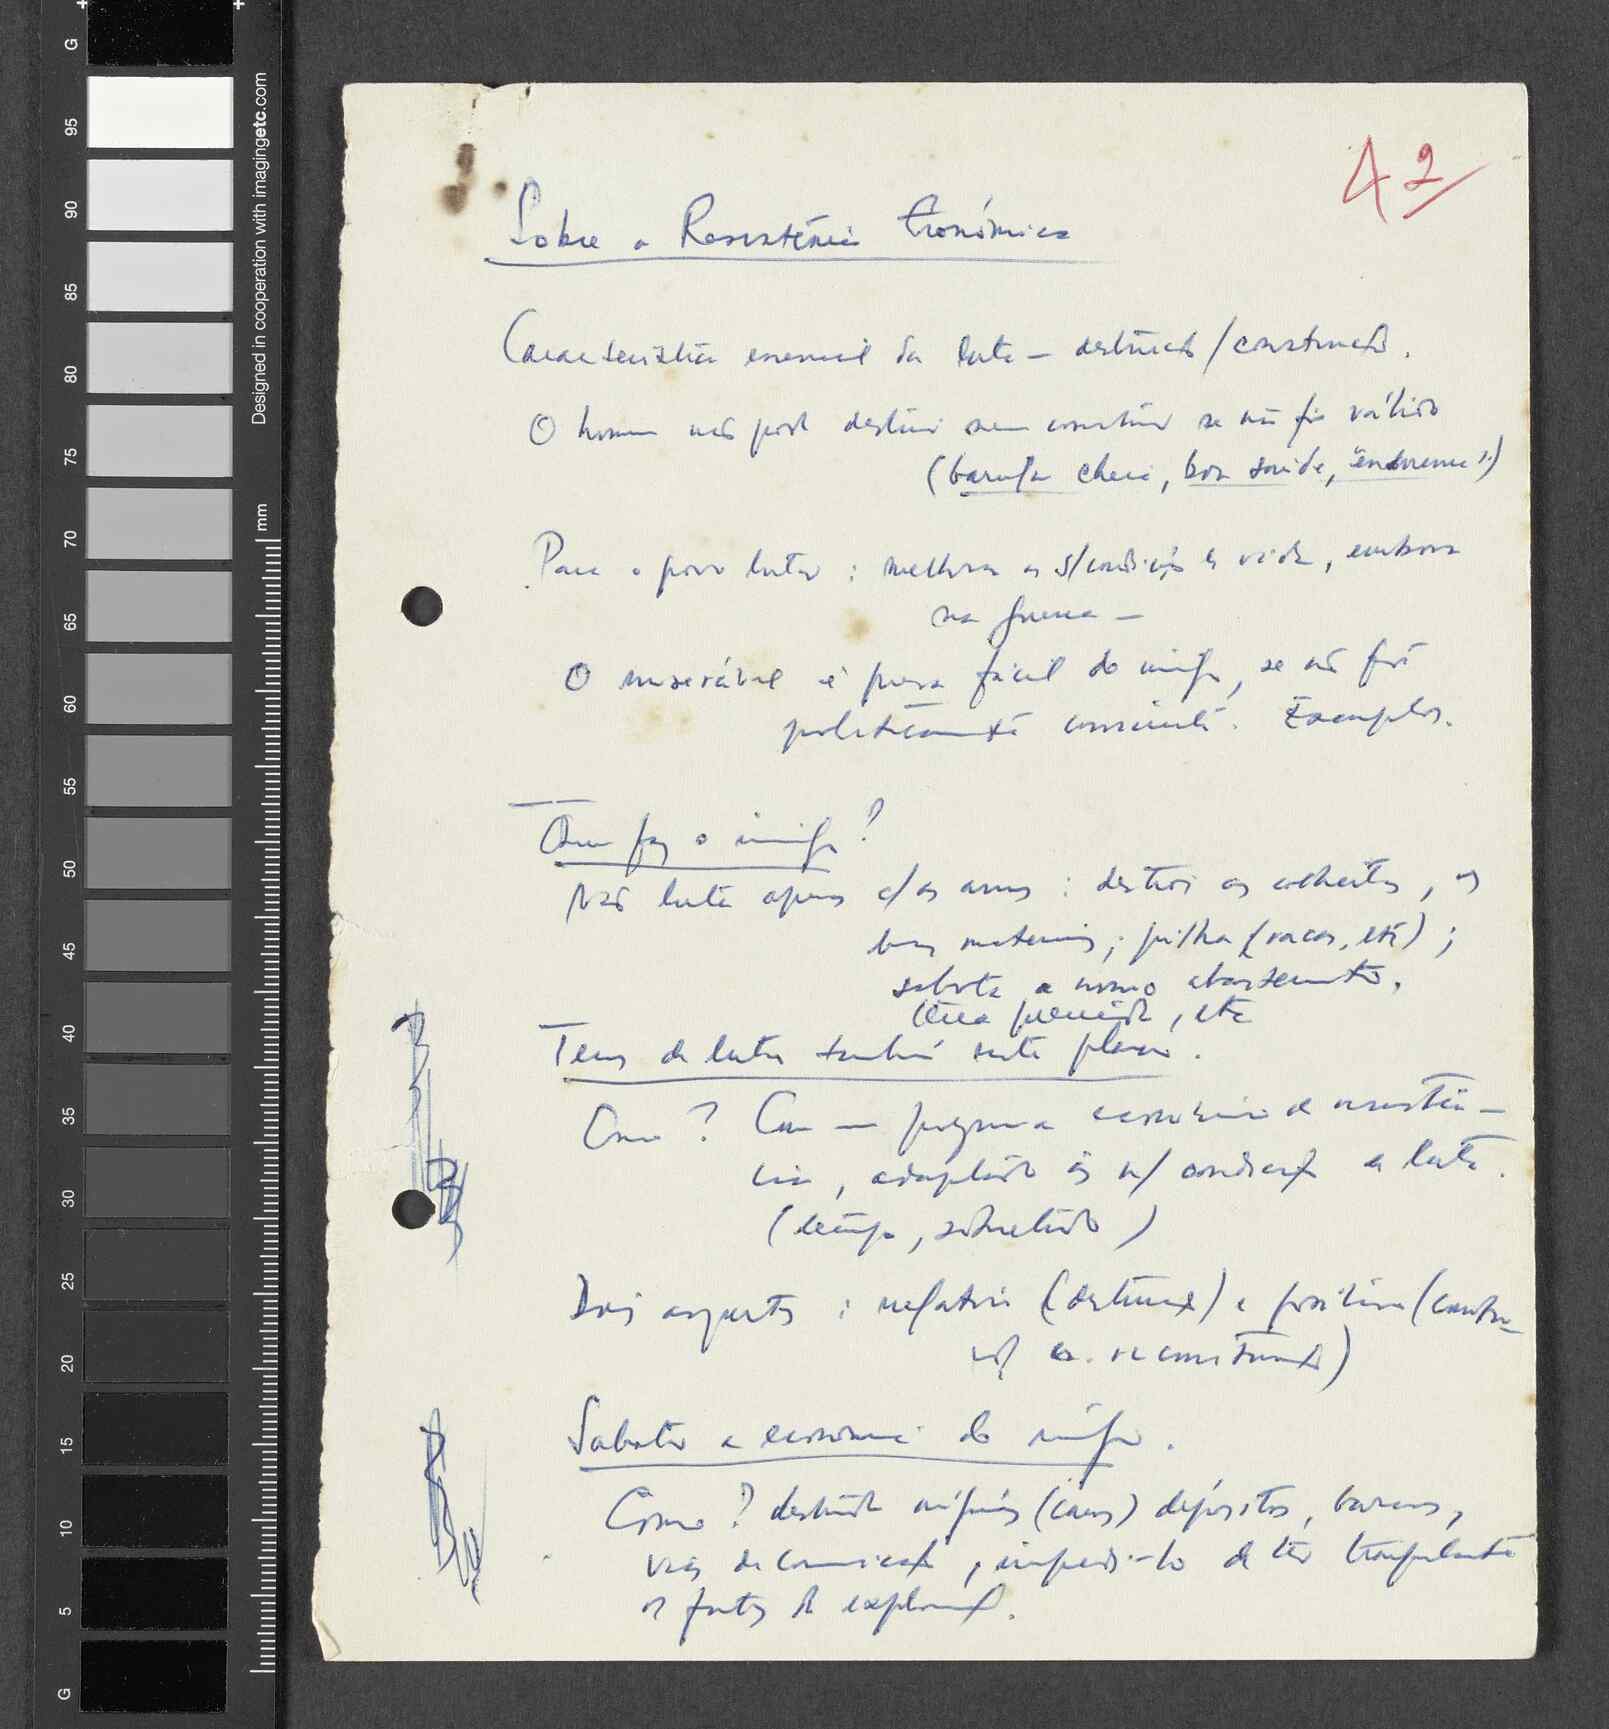 42
Sobre a Resistência Económica
Característica essencial da luta — destruição/construção.
O homem não pode destruir nem construir se não for válido
(barriga cheia, boa saúde, "endurance")
Para o povo lutar: melhorar as s/condições de vida, embora
na guerra —
O miserável é presa fácil do inimigo, se não for
politicamente consciente. Exemplos.
Como faz o inimigo?
Não luta apenas c/as armas: destroi as colheitas, os
bens materiais; pilha (vacas, etc);
sabota o nosso abastecimento,
etc
Temos de lutar também neste plano.
Como? Com um programa económico de resistên-
cia, adaptado às n/ condições de luta.
(tempo, sobretudo)
Dois aspectos: negativo (destruição) e positivo (constru-
ção e reconstrução)
Sabotar a economia do inimigo.
Como? destruindo máquinas (casas) depósitos, barcos,
vias de comunicação, impedi-lo de ter tranquilamente
os frutos da exploração.
Designed in cooperation with imagingetc.com
mm
G
95
90
85
80
75
70
65
60
55
50
45
40
35
30
25
20
15
10
5
G